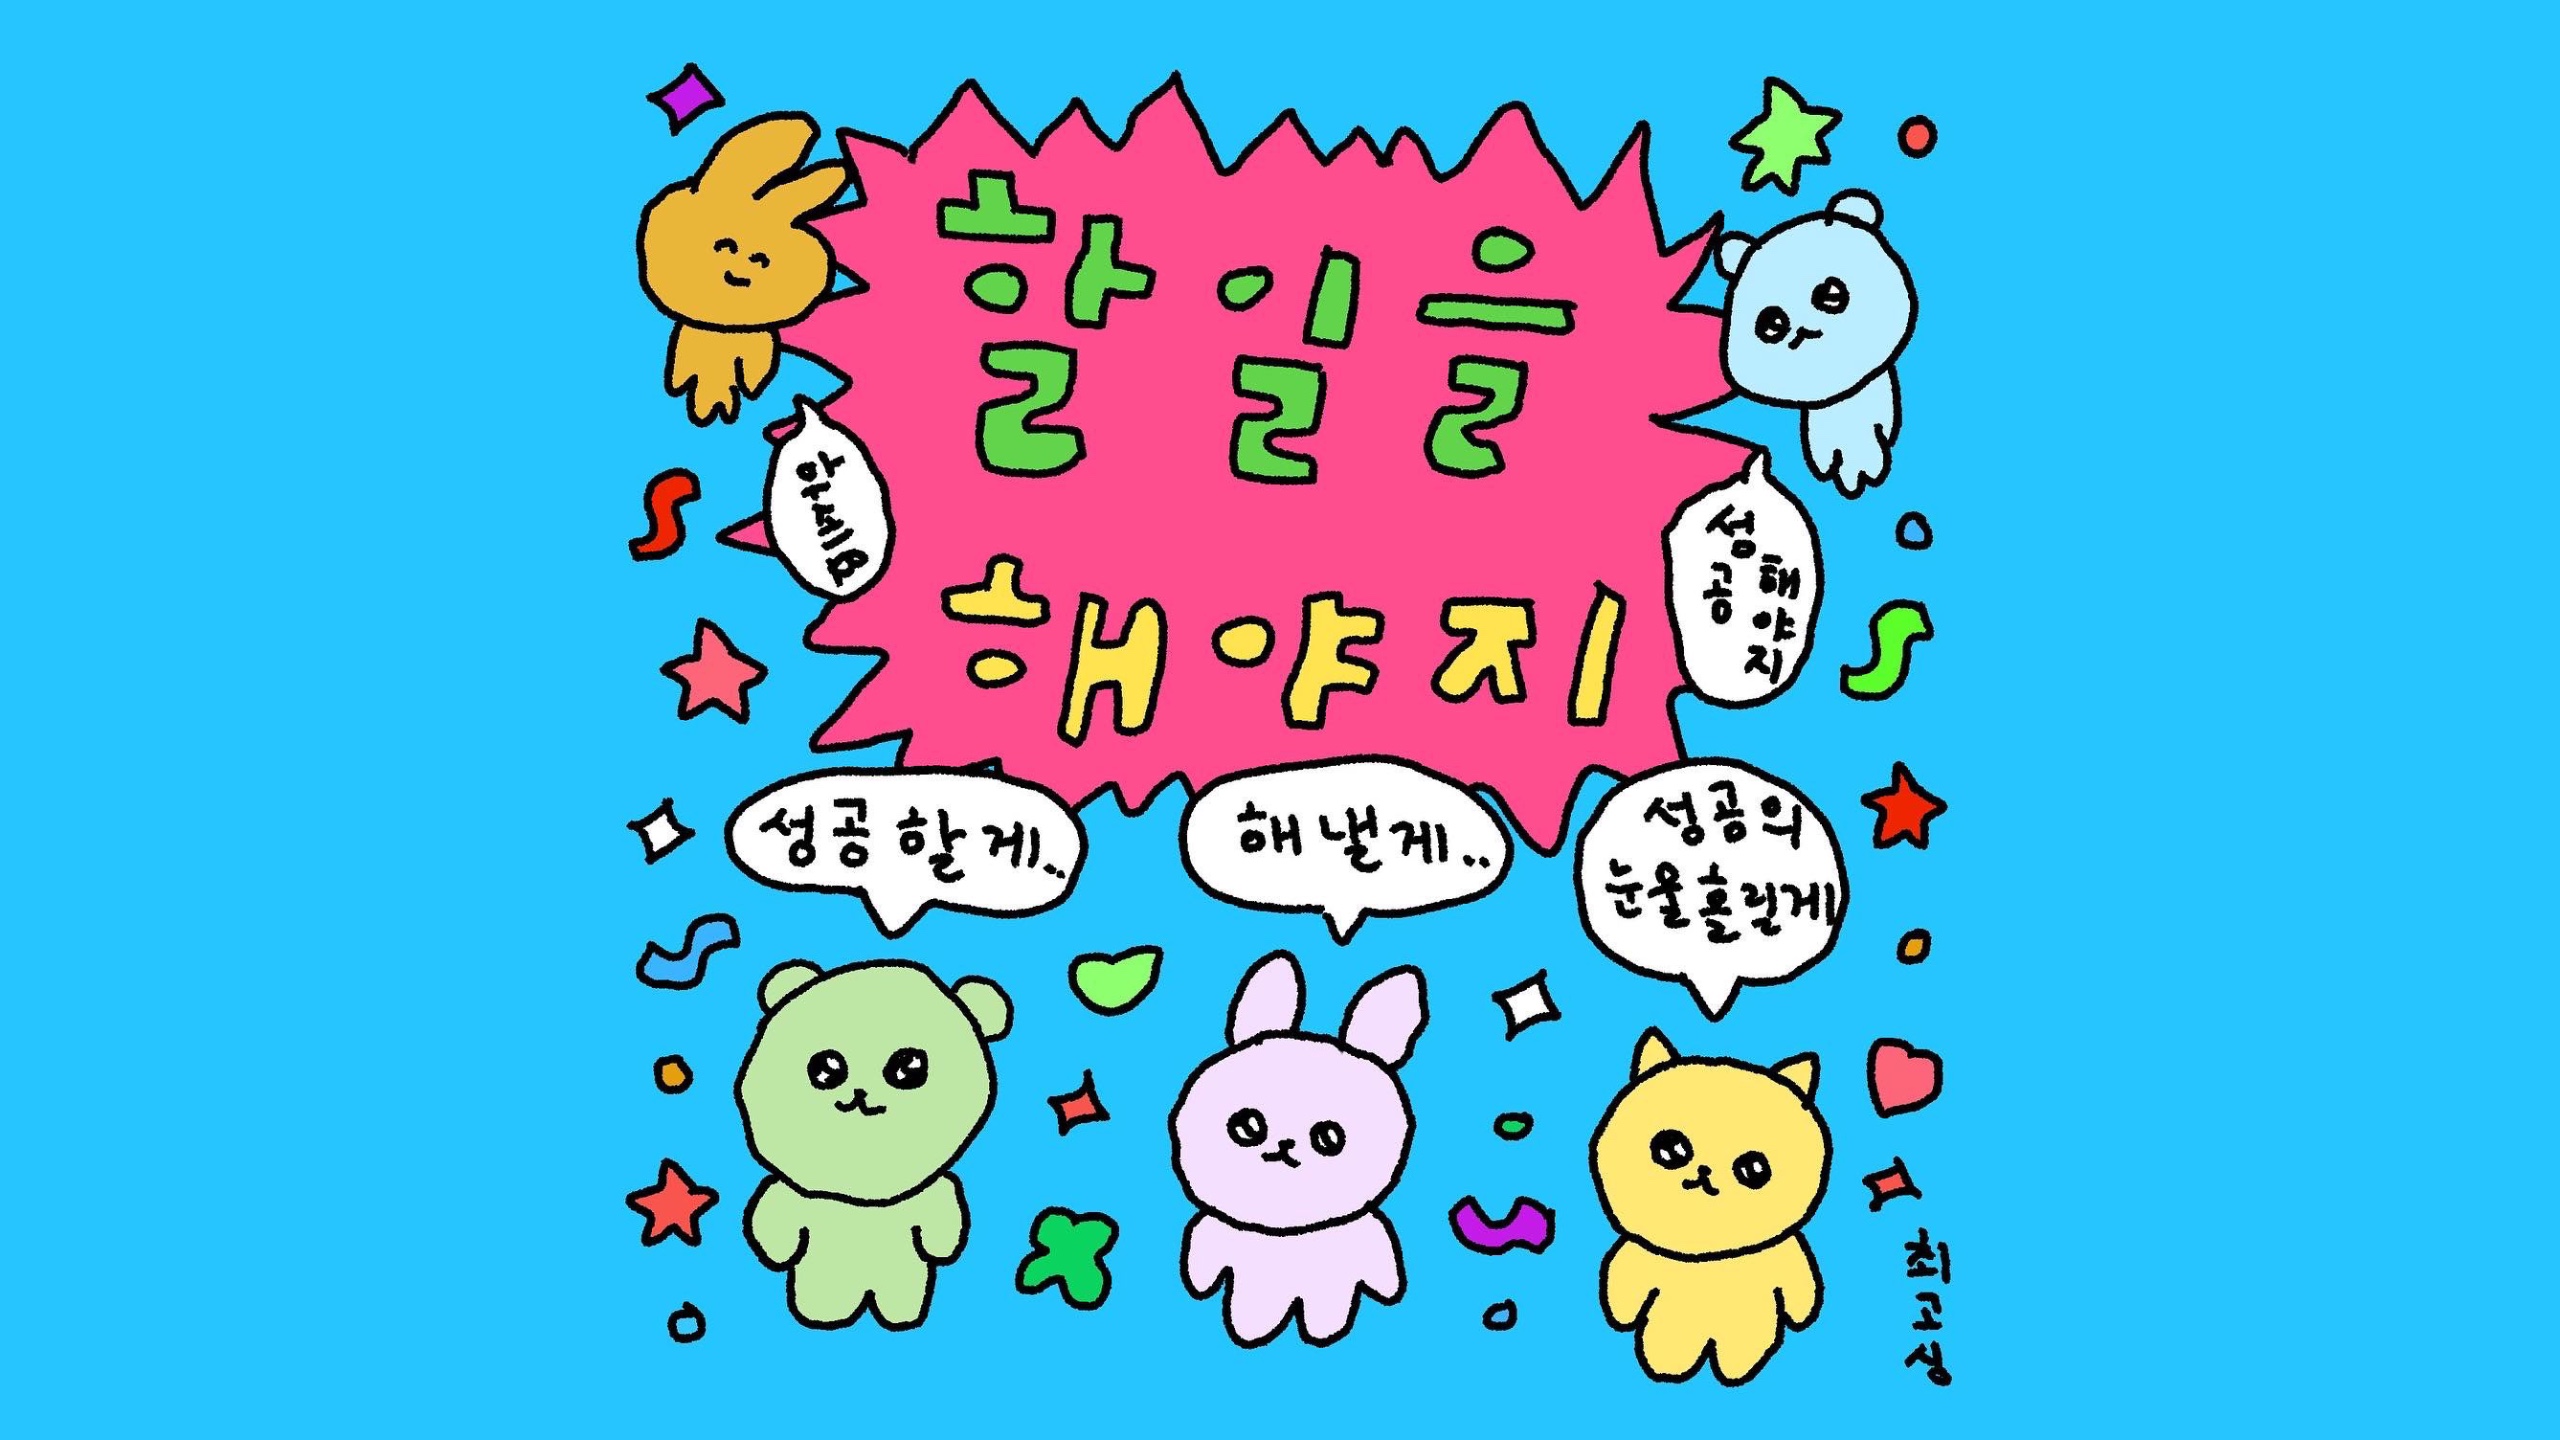 할일을
해야지
아쎄요
성공
해야지
성공할게..
해낼게..
성공의
눈물흘릴게
최고심